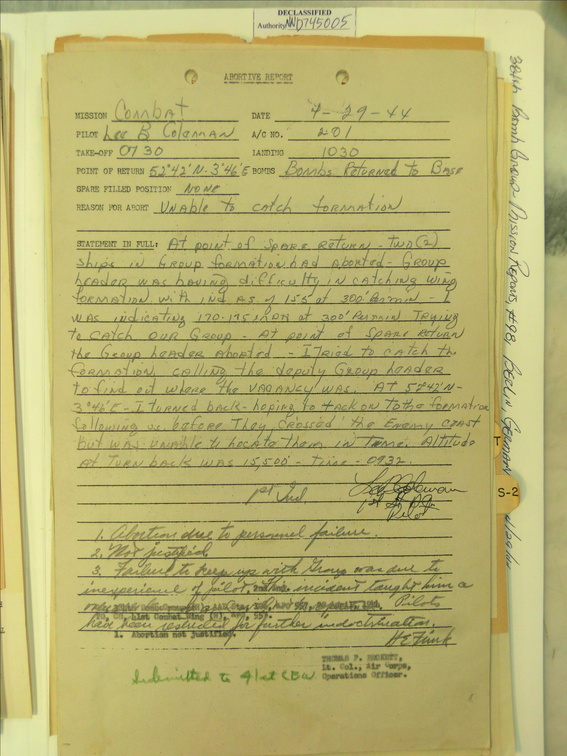 DECLASSIFIED
Authority NND745005
ABORTIVE REPORT
MISSION Combat DATE 4-29-44
PILOT Lee B Coleman A/C NO. 201
TAKE-OFF 0730 LANDING 1030
POINT OF RETURN 52°42'N-3°46'E BOMBS Bombs Returned to Base
SPARE FILLED POSITION NONE
REASON FOR ABORT Unable to catch formation
STATEMENT IN FULL: At point of spare return - two (2)
ships in Group formation had aborted - Group
leader was having difficulty in catching wing
formation with ind AS of 155 at 300'per min - I
was indicating 170-175 at 300'per min trying
to catch our Group - At point of spare return
the Group leader aborted - I tried to catch the
formation, calling the deputy Group leader
to find out where the vacancy was. At 52°42'N-
3°46'E - I turned back - hoping to tack on to the formation
following us before they crossed the enemy coast
but was unable to locate them in time. Altitude
at turn back was 15,500' - time - 0932.
1st Ind.
Pilot
1. Abortion due to personnel failure.
2. Not justified
3. Failure to keep up with Group was due to
inexperience of pilot. incident taught him a
Pilots
had been for further indoctrination.
1. Abortion not justified.
H E Fink
THOMAS P.
Lt. Col., Air Corps,
Operations Officer.
Submitted to 41st CBW
384th Bomb Group Mission Reports, #98, BERLIN, GERMANY
S-2